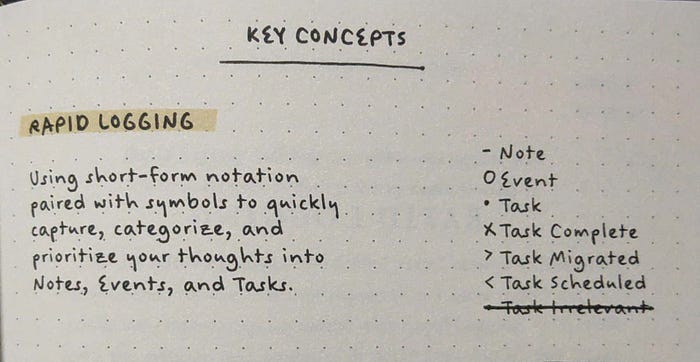 KEY CONCEPTS
RAPID LOGGING
Using short-form notation
paired with symbols to quickly
capture, categorize, and
prioritize your thoughts into
Notes, Events, and Tasks.
- Note
O Event
• Task
X Task Complete
> Task Migrated
< Task Scheduled
• Task Irrelevant